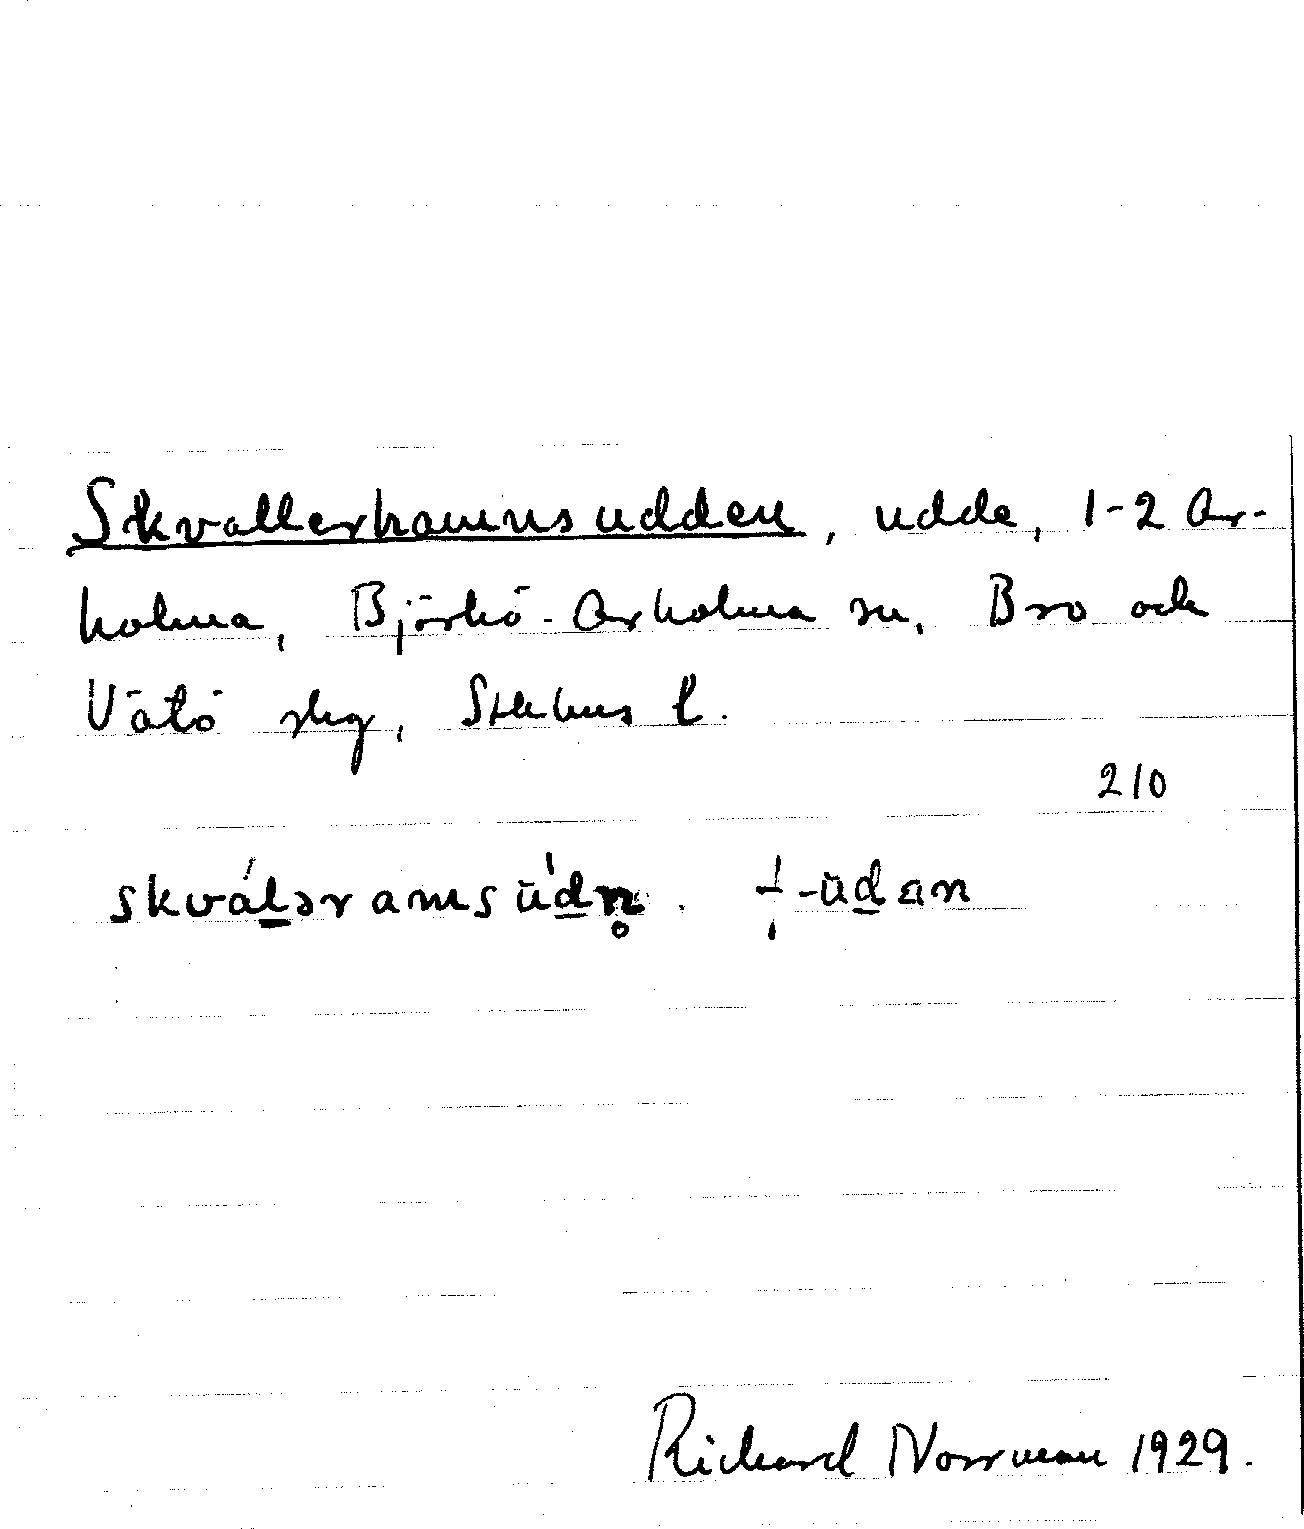 Skvallerhamnsudden, udde, 1-2 Ar-
holma, Björkö-Arholma sn, Bro och
Vätö skg, Sthlms l.
210
skválǝramsúdn̥. -ùdan
Richard Norrman 1929.